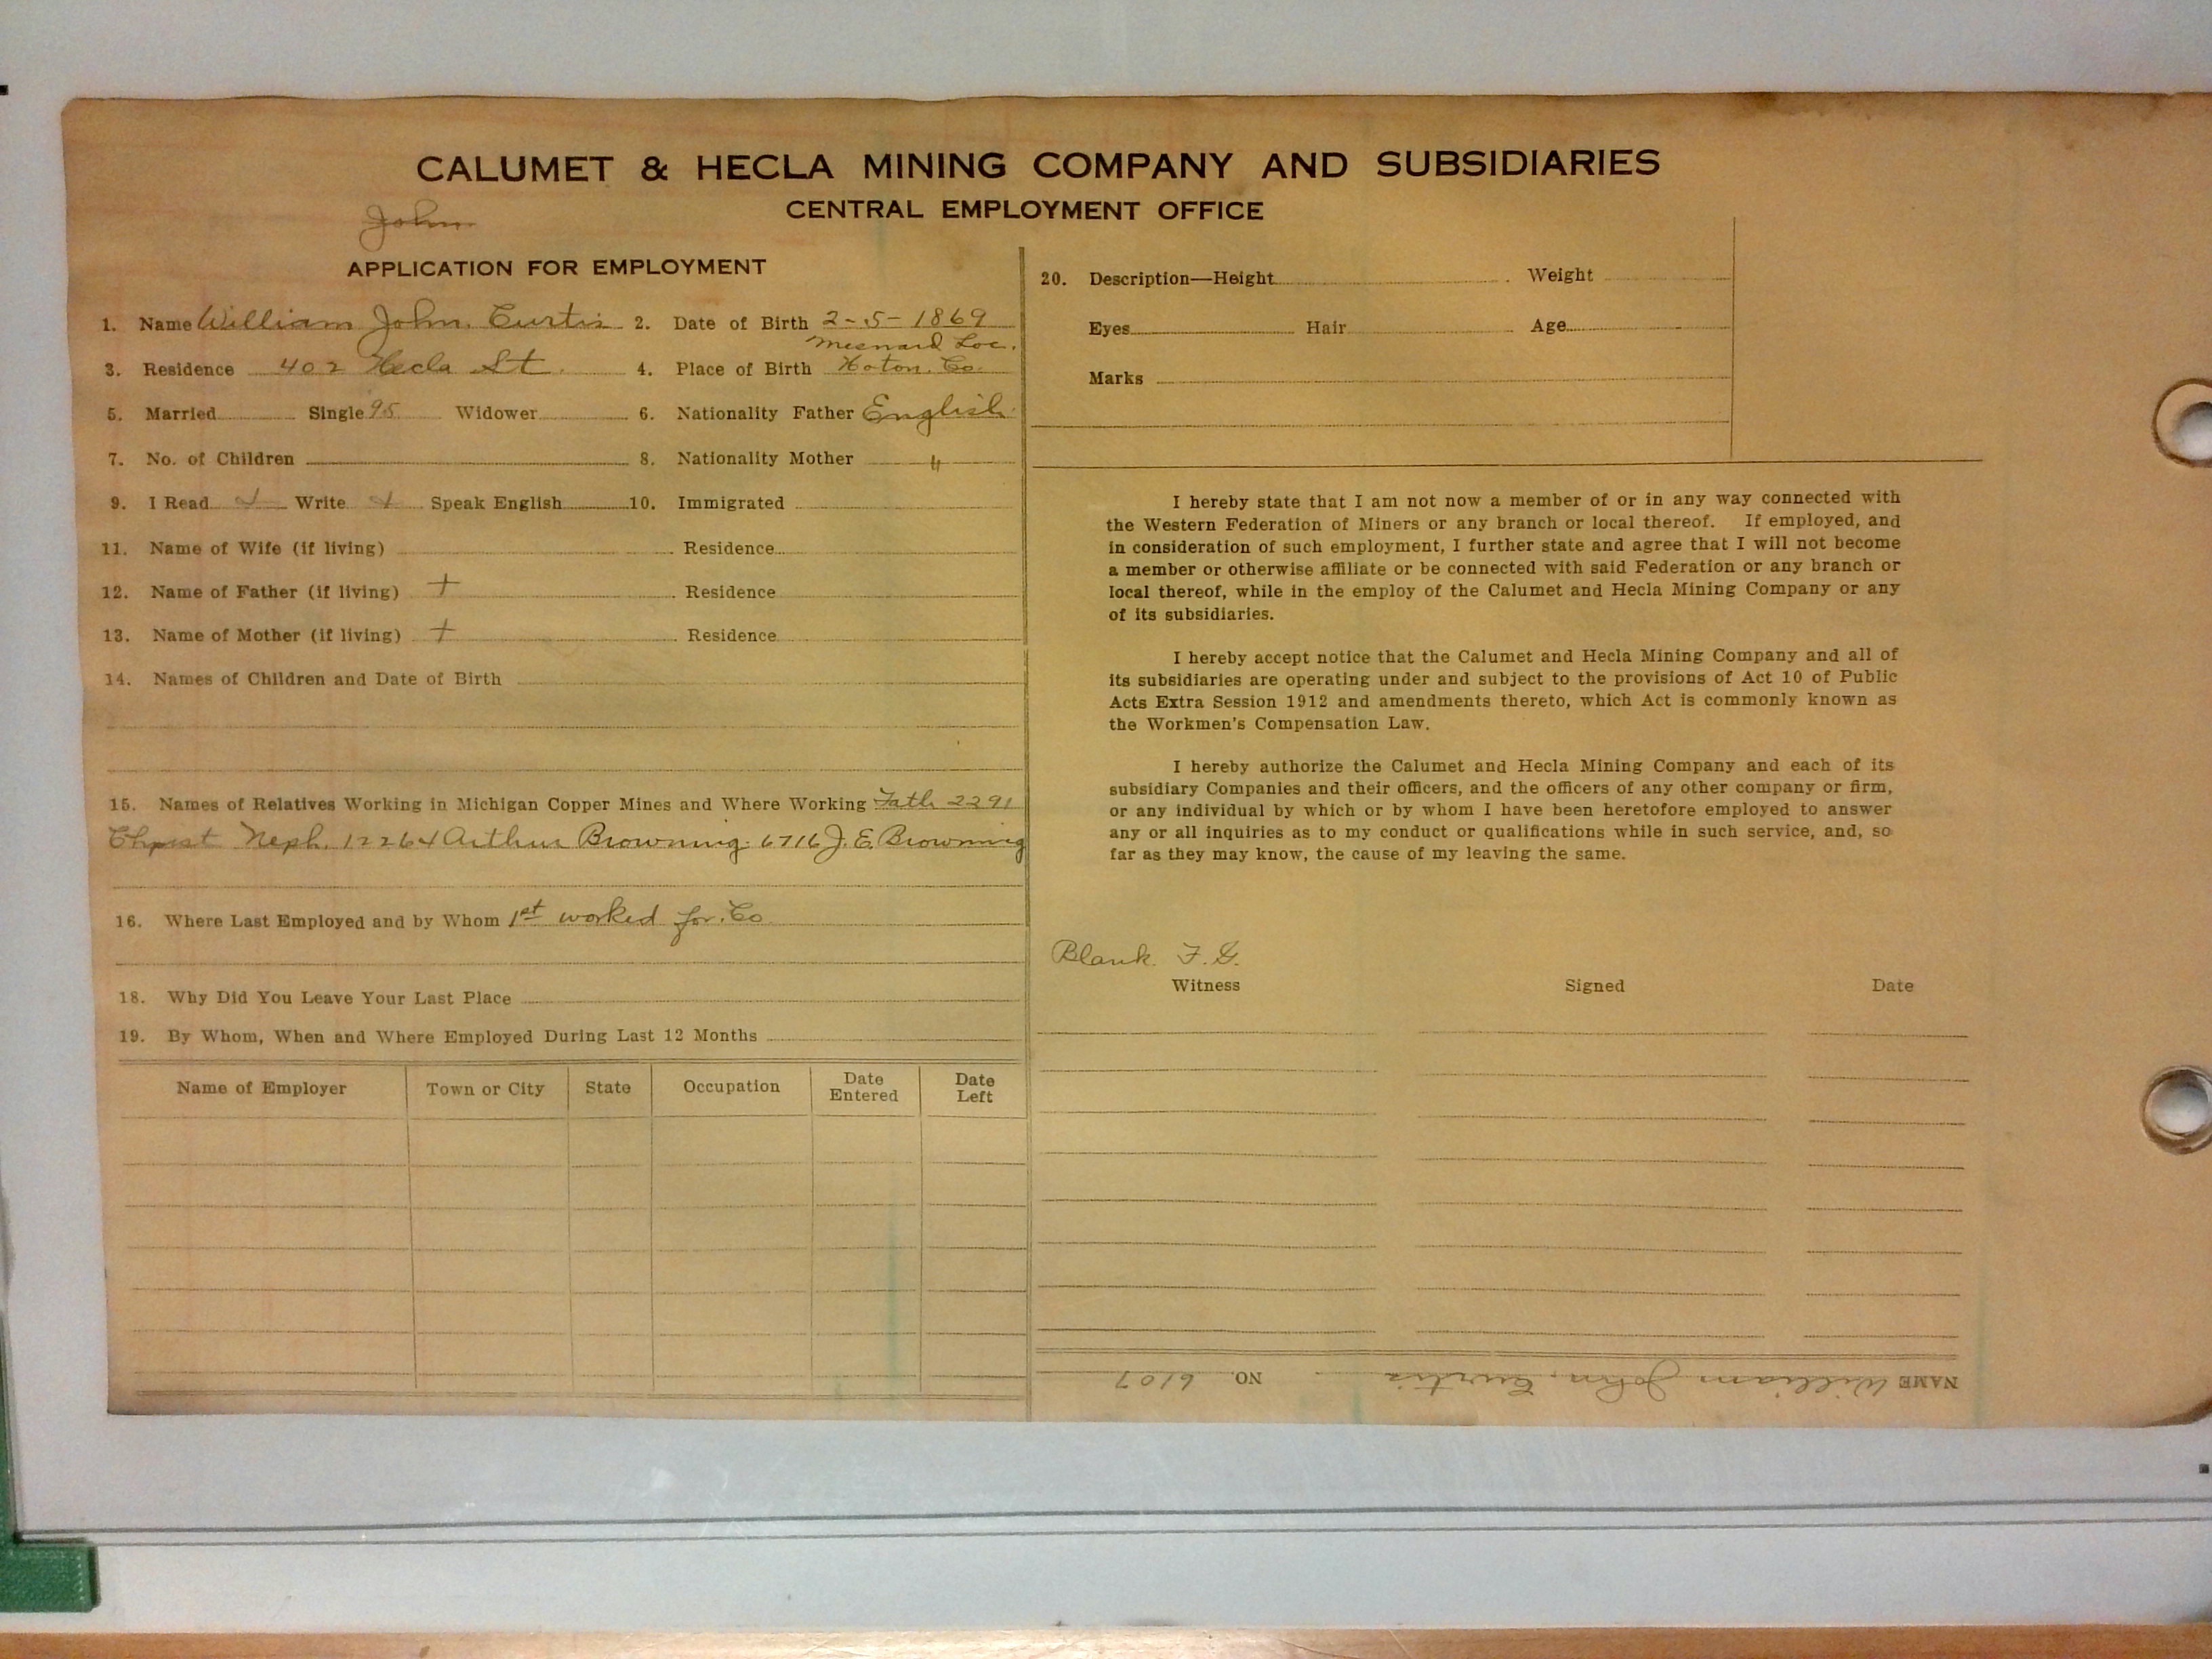 CALUMET & HECLA MINING COMPANY AND SUBSIDIARIES
CENTRAL EMPLOYMENT OFFICE
John
APPLICATION FOR EMPLOYMENT
1. Name William John Curtis 2. Date of Birth 2-5-1869
Mesnard Loc.
3. Residence 402 Hecla St. 4. Place of Birth Hoton. Co.
5. Married Single 95 Widower 6. Nationality Father English
7. No. of Children 8. Nationality Mother "
9. I Read Write Speak English 10. Immigrated
11. Name of Wife (if living) Residence
12. Name of Father (if living) + Residence
13. Name of Mother (if living) + Residence
14. Names of Children and Date of Birth
15. Names of Relatives Working in Michigan Copper Mines and Where Working Fath. 2291
Neph. 12264 Arthur Browning. 6716 J. E. Browning
16. Where Last Employed and by Whom 1st worked for Co
18. Why Did You Leave Your Last Place
19. By Whom, When and Where Employed During Last 12 Months
Name of Employer Town or City State Occupation Date Entered Date Left
20. Description—Height Weight
Eyes Hair Age
Marks
I hereby state that I am not now a member of or in any way connected with
the Western Federation of Miners or any branch or local thereof. If employed, and
in consideration of such employment, I further state and agree that I will not become
a member or otherwise affiliate or be connected with said Federation or any branch or
local thereof, while in the employ of the Calumet and Hecla Mining Company or any
of its subsidiaries.
I hereby accept notice that the Calumet and Hecla Mining Company and all of
its subsidiaries are operating under and subject to the provisions of Act 10 of Public
Acts Extra Session 1912 and amendments thereto, which Act is commonly known as
the Workmen's Compensation Law.
I hereby authorize the Calumet and Hecla Mining Company and each of its
subsidiary Companies and their officers, and the officers of any other company or firm,
or any individual by which or by whom I have been heretofore employed to answer
any or all inquiries as to my conduct or qualifications while in such service, and, so
far as they may know, the cause of my leaving the same.
Blank F.G.
Witness Signed Date
NAME William John Curtis NO. 6107